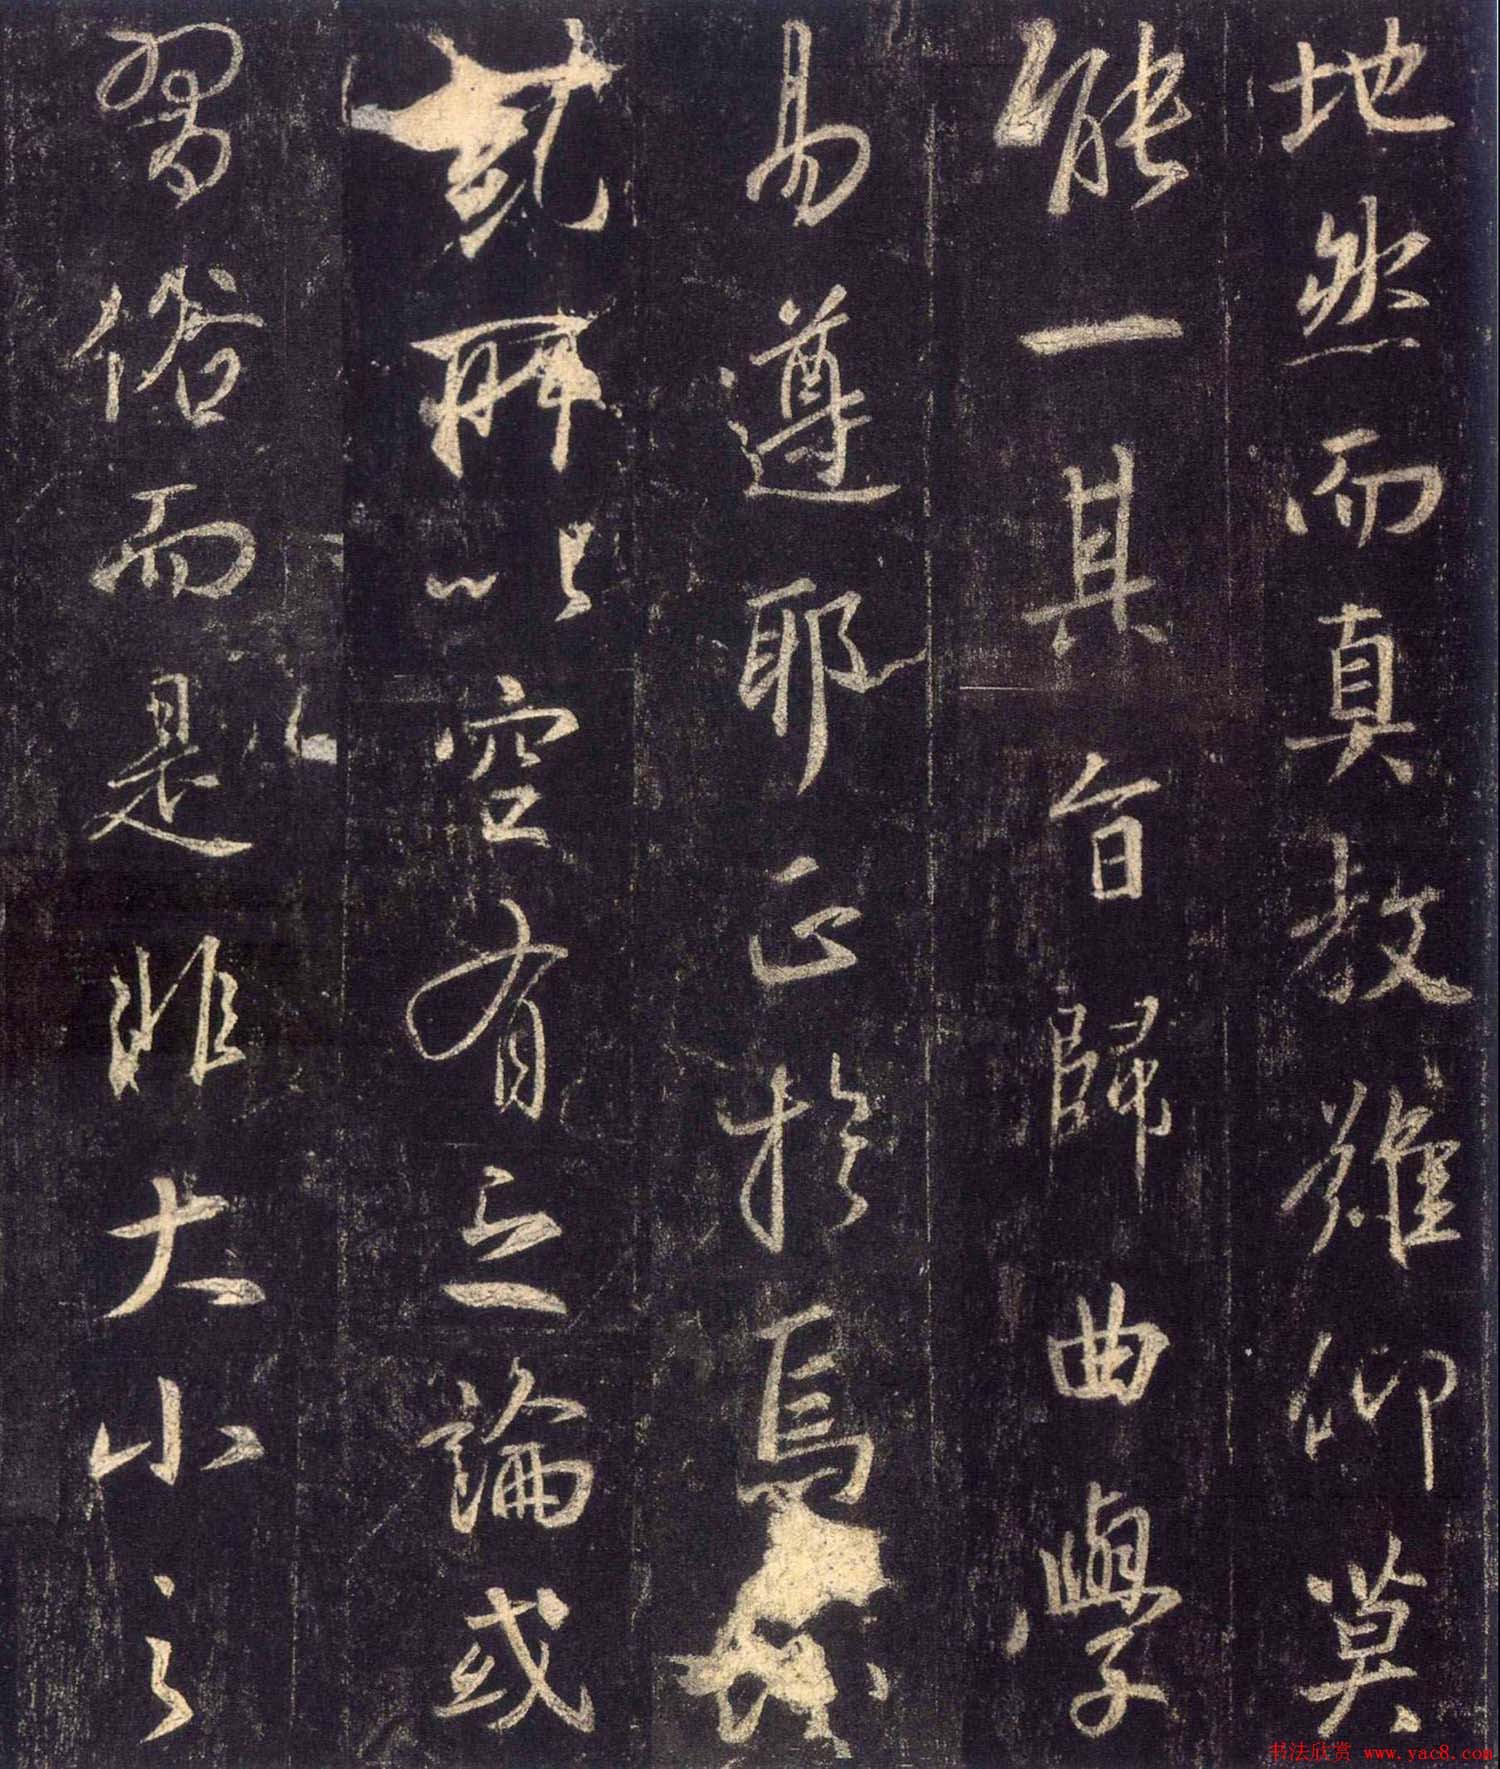 地然而真教難仰莫
能一其旨歸曲學
易遵耶正於焉
糺所以空有之論或
習俗而是非大小之
书法欣赏 www.yac8.com